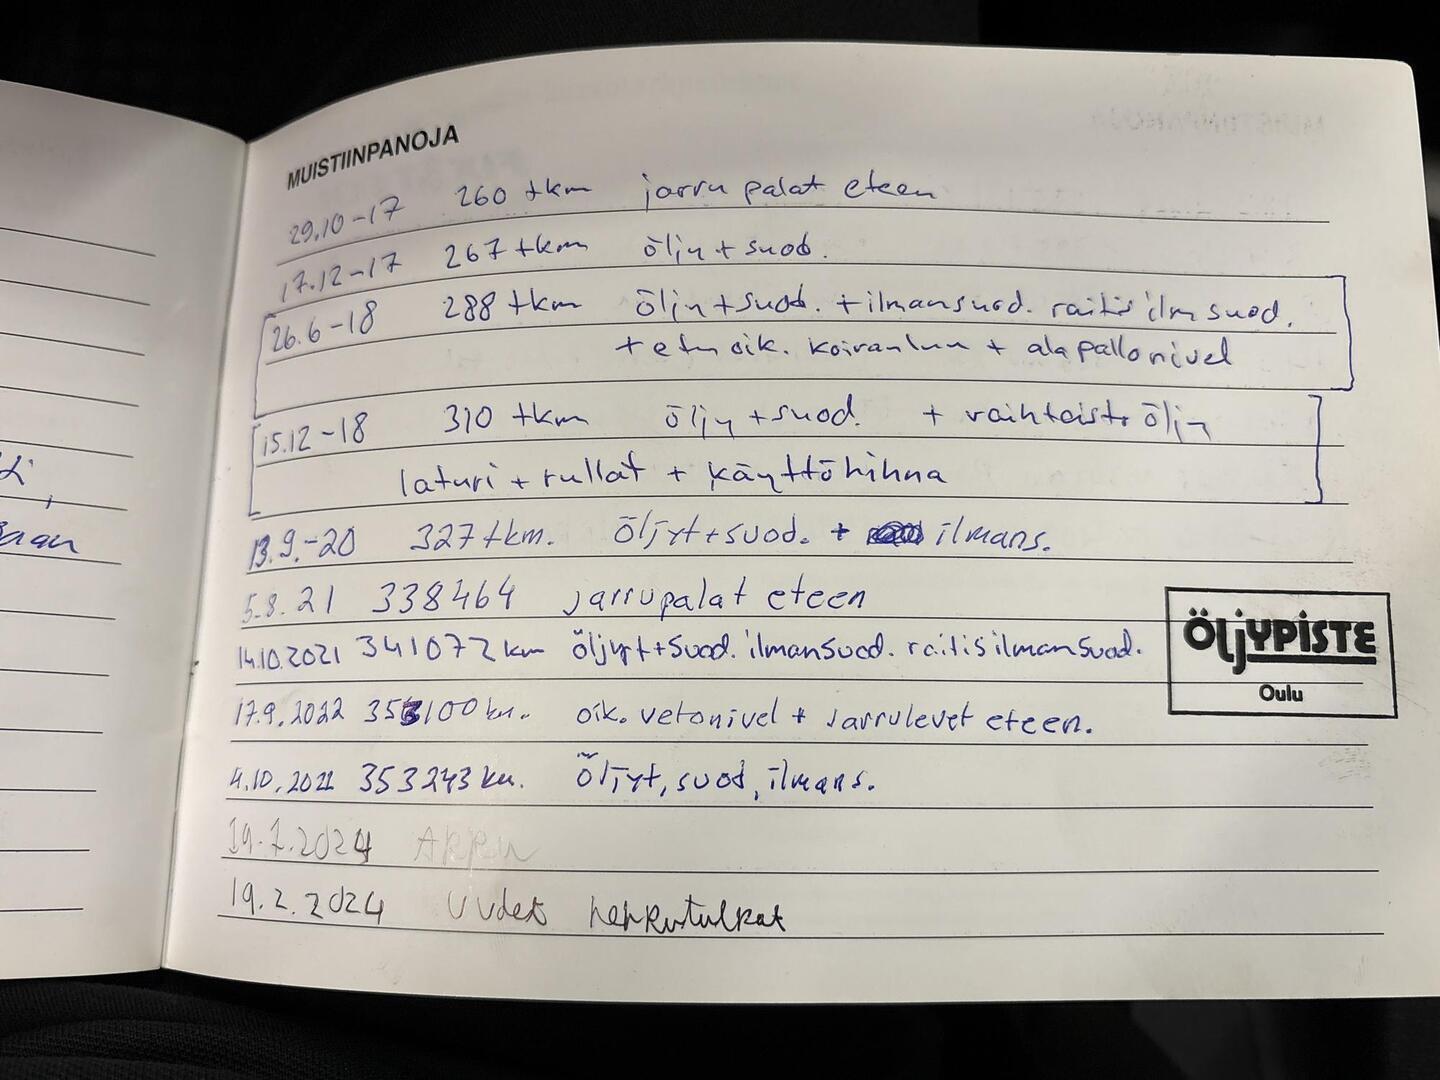 MUISTIINPANOJA
29.10-17 260 tkm jarru palat eteen
17.12-17 267 tkm öljy + suod.
26.6-18 288 tkm öljy + suod. + ilmansuod. raitis ilm suod.
+ etu oik. koiranluu + alapallonivel
15.12-18 310 tkm öljy + suod. + vaihteisto öljy
laturi + rullat + käyttöhihna
13.9.-20 327 tkm. öljyt + suod. + ilmans.
5.8.21 338464 jarrupalat eteen
14.10.2021 341072 km öljyt + suod. ilmansuod. raitisilmansuod.
ÖljYPiSTE
Oulu
17.9.2022 353100 km. oik. vetonivel + jarrulevet eteen.
4.10.2022 353243 km. Öljyt, suod, ilmans.
19.7.2024
19.2.2024 Uudet hehkutulkat